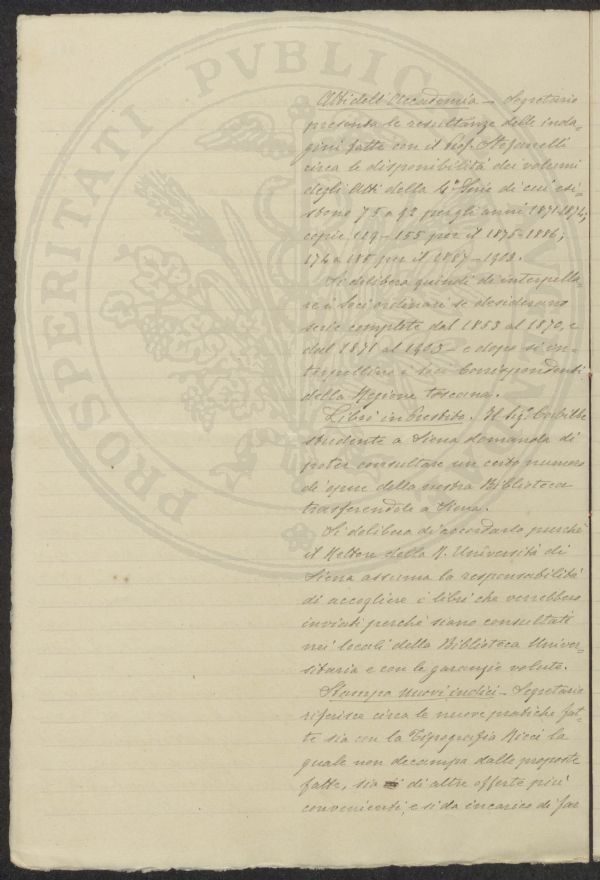 PROSPERITATI PVBLICAE
Atti dell'Accademia – Segretario
presenta le resultanze delle inda-
gini fatte con il Prof. Stefanelli
circa le disponibilità dei volumi
degli Atti della 4ª Serie di cui esi-
stono 75 a 92 per gli anni 1871-1874;
copie 129-155 per il 1875-1886;
174 a 185 per il 1887-1903.
Si delibera quindi di interpella-
re i Soci ordinari se desiderano
serie complete dal 1853 al 1870, e
dal 1871 al 1903 – e dopo si in-
terpellino i Soci Corrispondenti
della Regione toscana.
Libri in Prestito. Il Sigʳ
studente a Siena domanda di
poter consultare un certo numero
di opere della nostra Biblioteca
trasferendole a Siena.
Si delibera di accordarlo purchè
il Rettore della R. Università di
Siena assuma la responsabilità
di accogliere i libri che verrebbero
inviati perchè siano consultati
nei locali della Biblioteca Univer-
sitaria e con le garanzie volute.
Stampa nuovi indici – Segretario
riferisce circa le nuove pratiche fat-
te sia con la Tipografia Ricci la
quale non decampa dalle proposte
fatte, sia di altre offerte più
convenienti, e si da incarico di far